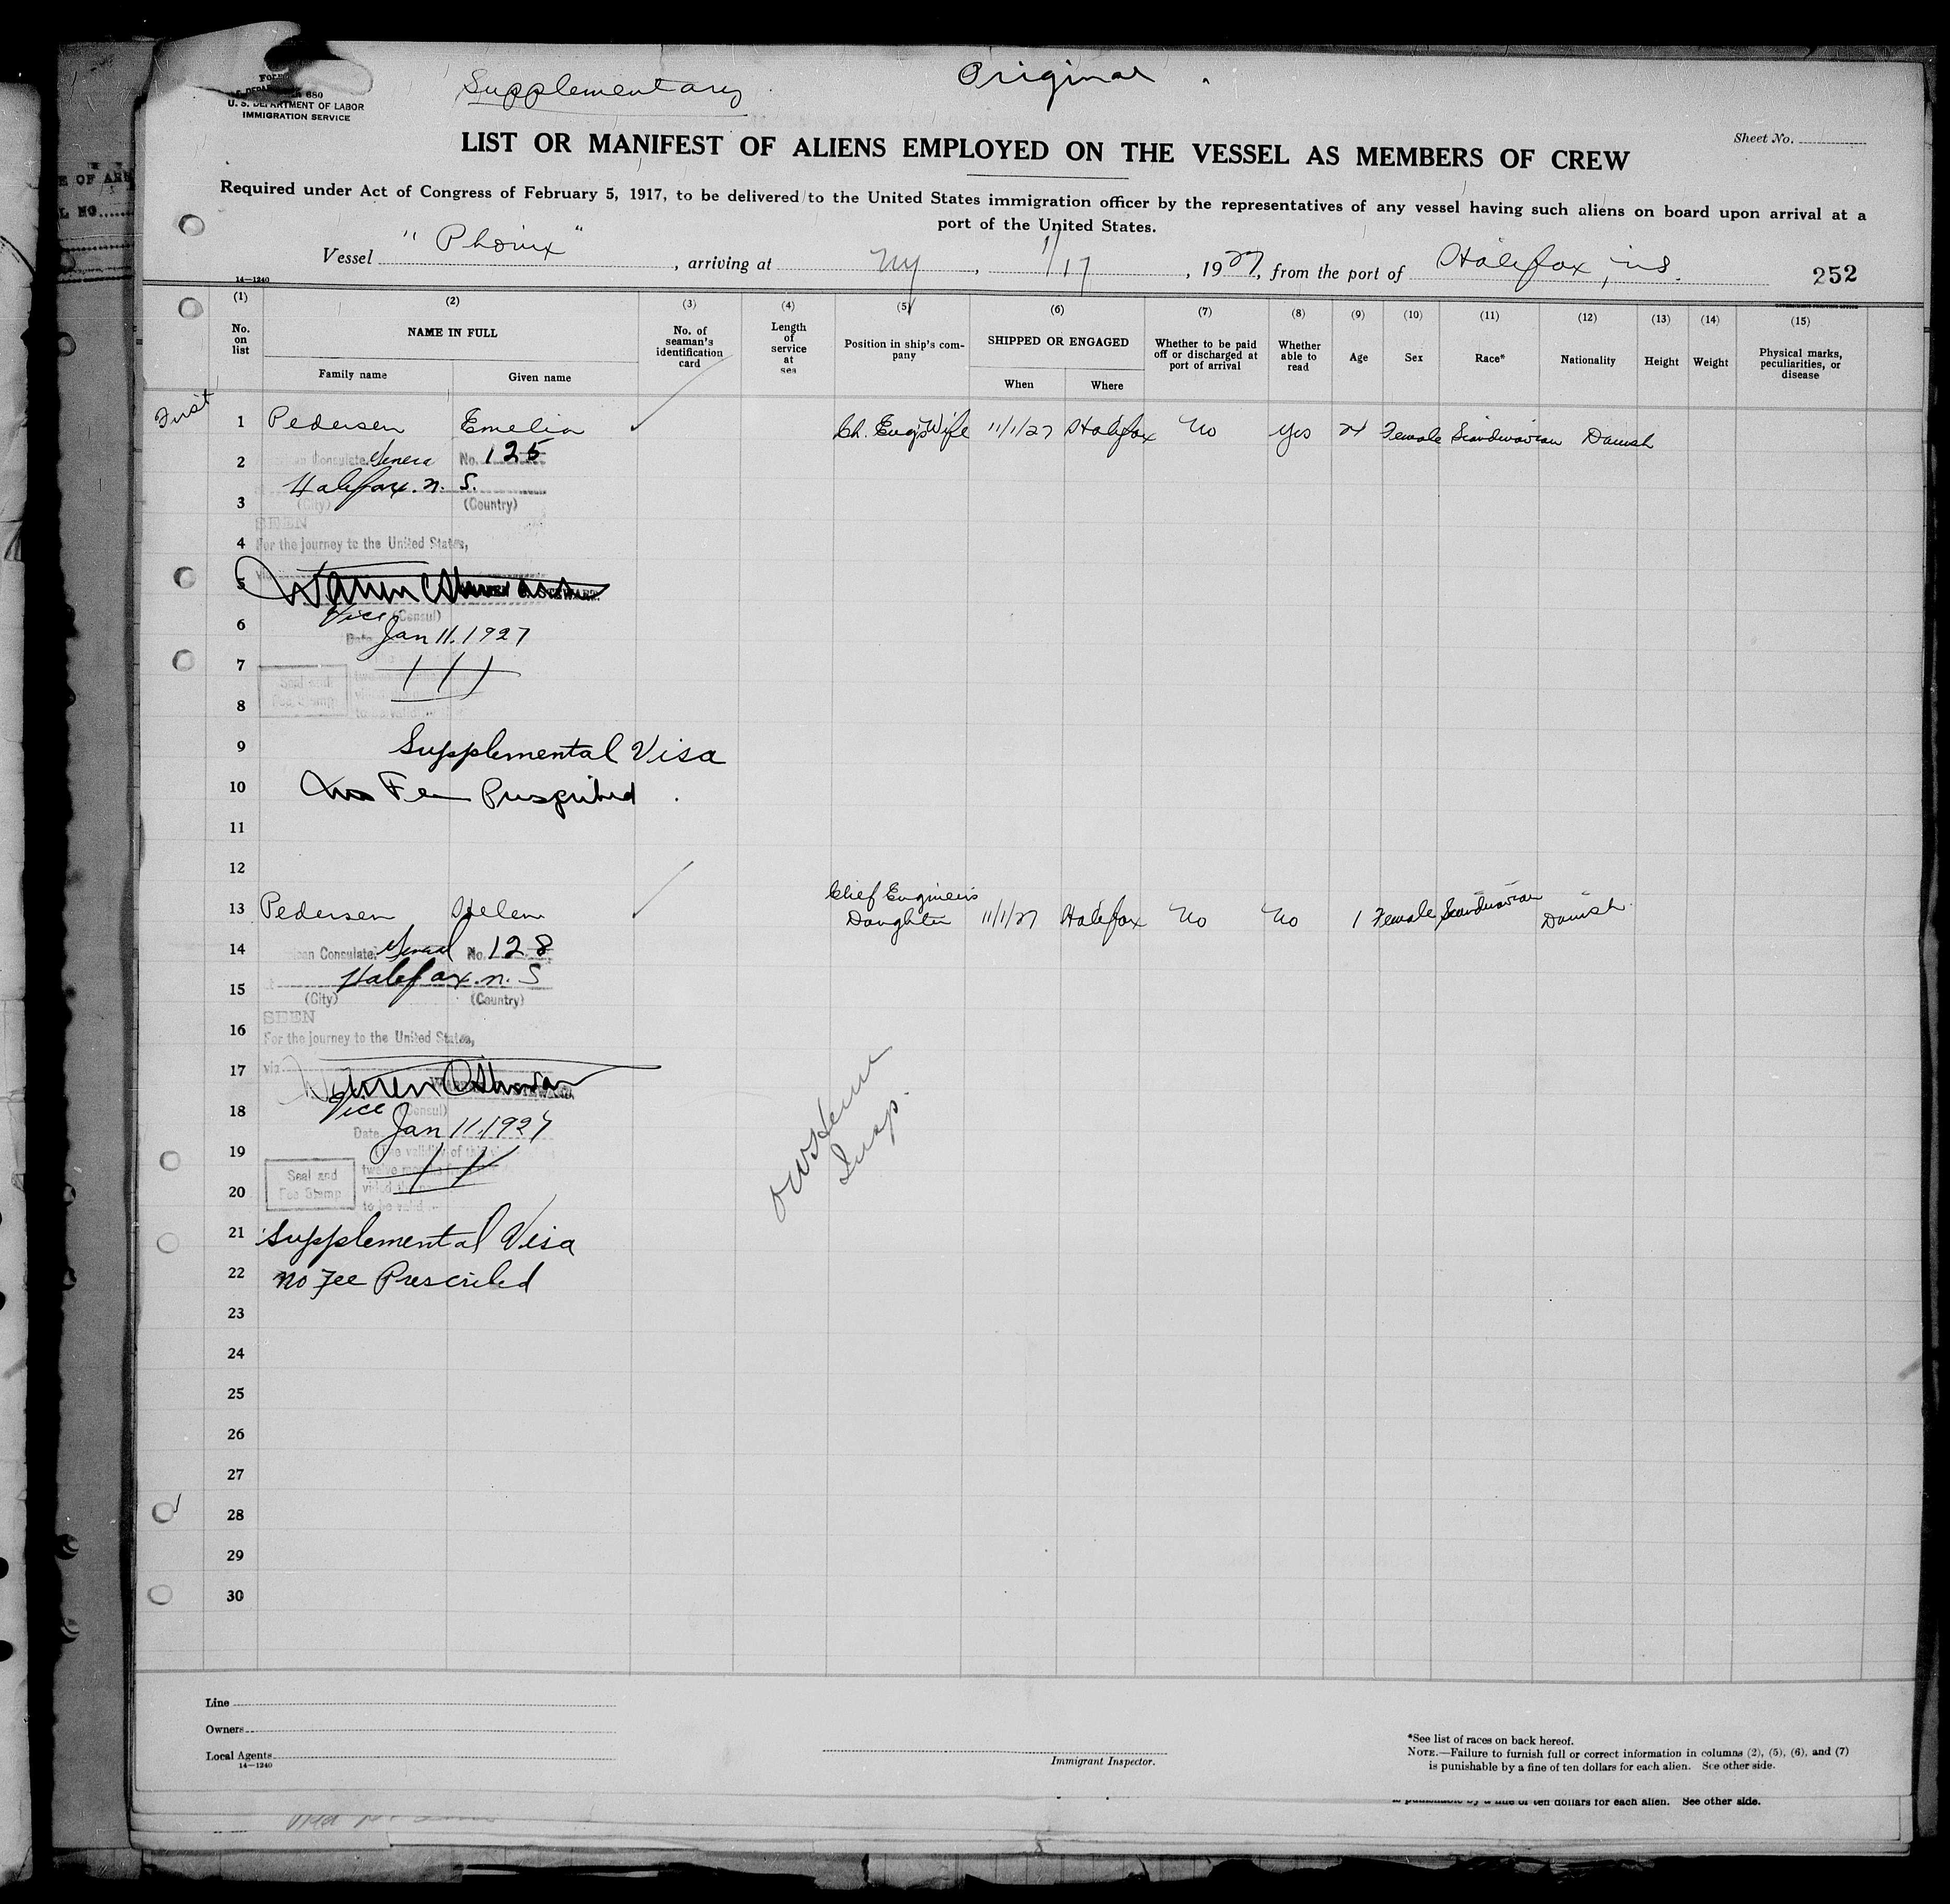 Supplementary
Original
FORM 680
U. S. DEPARTMENT OF LABOR
IMMIGRATION SERVICE
Sheet No.
LIST OR MANIFEST OF ALIENS EMPLOYED ON THE VESSEL AS MEMBERS OF CREW
Required under Act of Congress of February 5, 1917, to be delivered to the United States immigration officer by the representatives of any vessel having such aliens on board upon arrival at a
port of the United States.
Vessel "Phoinx", arriving at NY, 1/17, 1927, from the port of Halifax, N.S. 252
14—1240
(1) (2) (3) (4) (5) (6) (7) (8) (9) (10) (11) (12) (13) (14) (15)
No. on list
NAME IN FULL
Family name Given name
No. of seaman's identification card
Length of service at sea
Position in ship's company
SHIPPED OR ENGAGED
When Where
Whether to be paid off or discharged at port of arrival
Whether able to read
Age
Sex
Race*
Nationality
Height
Weight
Physical marks, peculiarities, or disease
First
1 Pedersen Emelia Ch. Eng's Wife 11/1/27 Halifax No Yes 24 Female Scandinavian Danish
2 Consulate General No. 125
Halifax. N. S.
3 (City) (Country)
SEEN
4 For the journey to the United States,
5 via
Vice (Consul)
6 Date Jan 11. 1927
7
Seal and
Fee Stamp
8
9 Supplemental Visa
10 No Fee Prescribed
11
12
Chief Engineer's
13 Pedersen Helen Daughter 11/1/27 Halifax No No 1 Female Scandinavian Danish
14 Consulate General No. 128
Halifax. N. S
15 (City) (Country)
SEEN
16 For the journey to the United States,
17 via
Vice (Consul)
18 Date Jan 11. 1927
19
Seal and
Fee Stamp
20
21 Supplemental Visa
22 No Fee Prescribed
Insp.
23
24
25
26
27
28
29
30
Line
Owners
Local Agents
14—1240
Immigrant Inspector.
*See list of races on back hereof.
NOTE.—Failure to furnish full or correct information in columns (2), (5), (6), and (7)
is punishable by a fine of ten dollars for each alien. See other side.
is punishable by a fine of ten dollars for each alien. See other side.